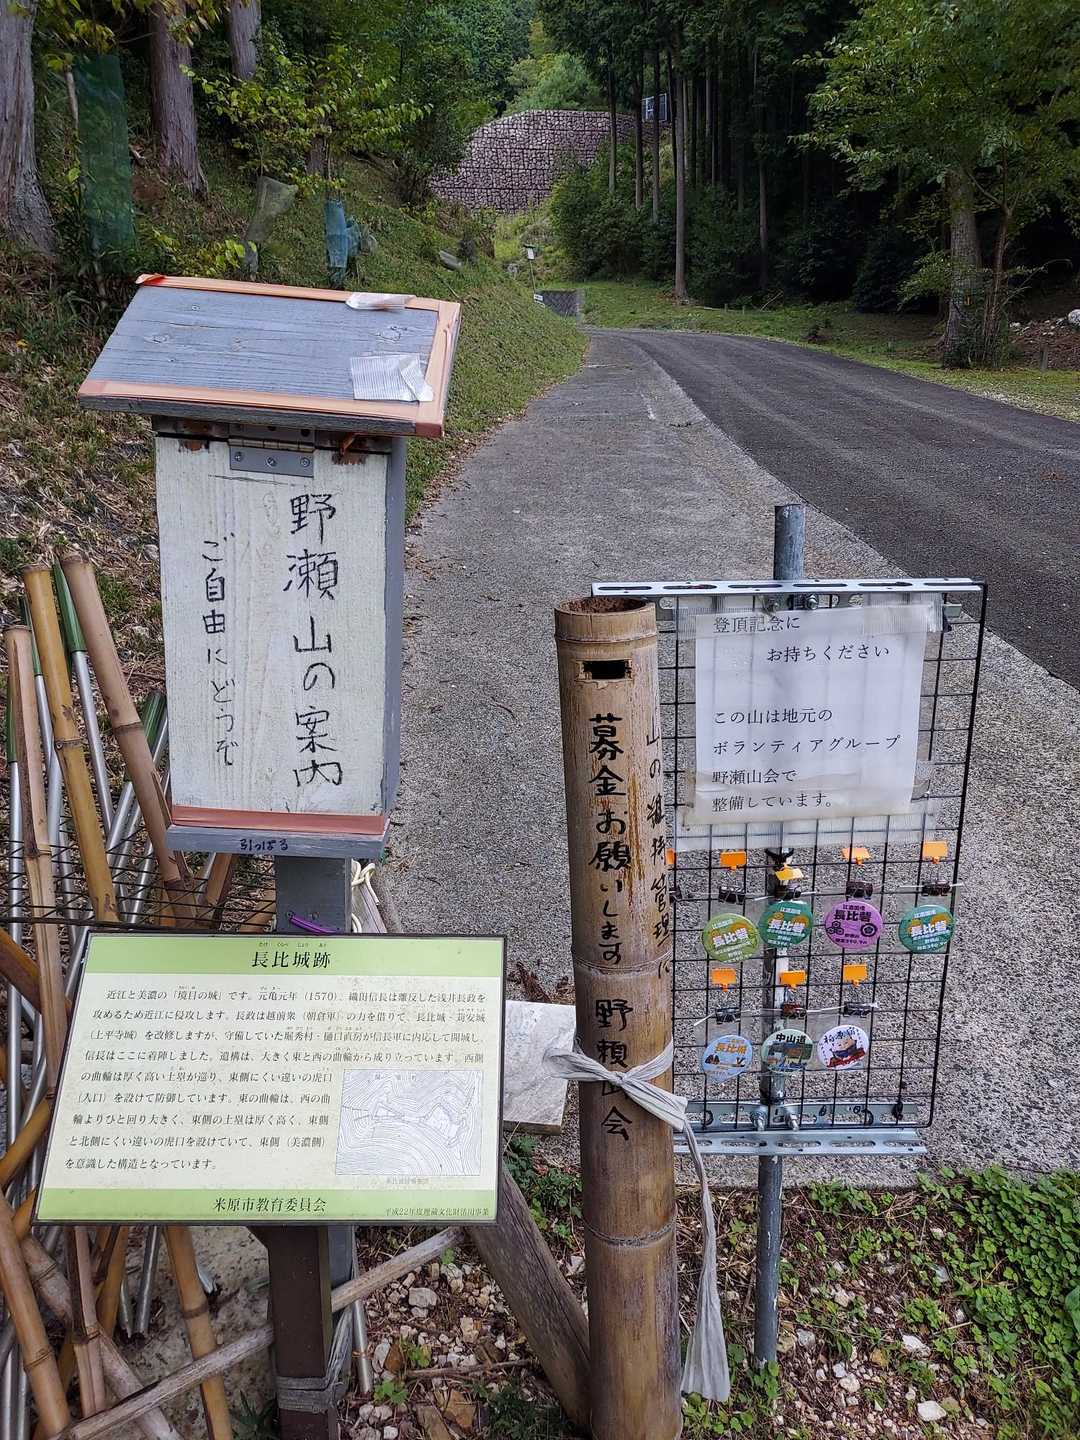 野瀬山の案内
ご自由にどうぞ
引っぱる
たけ くらべ じょう あと
長比城跡
近江と美濃の「境目の城」です。元亀元年（1570）、織田信長は離反した浅井長政を
攻めるため近江に侵攻します。長政は越前衆（朝倉軍）の力を借りて、長比城・苅安城
（上平寺城）を改修しますが、守備していた堀秀村・樋口直房が信長軍に内応して開城し、
信長はここに着陣しました。遺構は、大きく東と西の曲輪から成り立っています。西側
の曲輪は厚く高い土塁が巡り、東側にくい違いの虎口
（入口）を設けて防御しています。東の曲輪は、西の曲
輪よりひと回り大きく、東側の土塁は厚く高く、東側
と北側にくい違いの虎口を設けていて、東側（美濃側）
を意識した構造となっています。
米原市教育委員会
平成22年度埋蔵文化財活用事業
募金お願いします 野瀬山会
山の維持管理に
登頂記念に
お持ちください
この山は地元の
ボランティアグループ
野瀬山会で
整備しています。
江濃国境
長比砦
江濃国境
長比砦
江濃国境
長比砦
江濃国境
長比砦
長比城
中山道